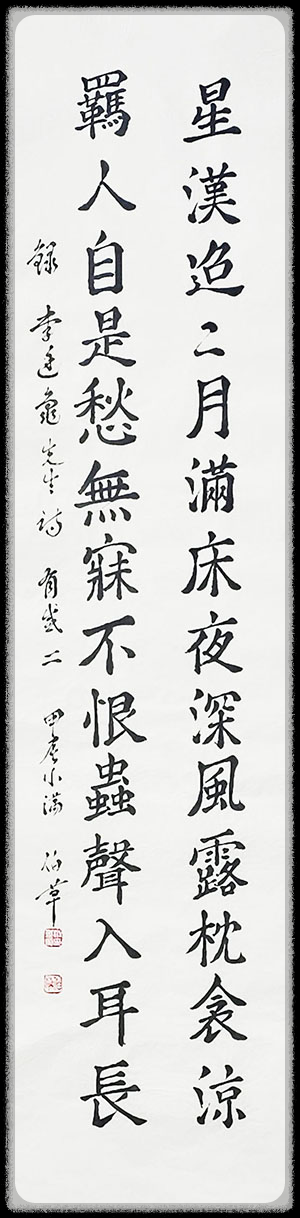 星漢迢〻月滿床夜深風露枕衾涼
羈人自是愁無寐不恨蟲聲入耳長
錄 李廷龜先生詩 有感二 甲辰小滿 伯草